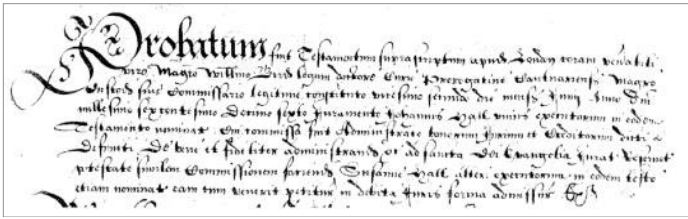 Probatum fuit Testamentum suprascriptum apud London coram venerabili
viro Magro Willmo Bird legum doctore Curie Prerogative Cantuariensis Magro
Custode sive Commissario legitime constituto vicesimo secundo die mensis Junij Anno Dni
millesimo sexcentesimo Decimo sexto Juramento Johannis Hall unius executorum in eodem
Testamento nominat Cui commissa fuit Administratio bonorum Jurium et Creditorum dicti
defuncti De bene et fideliter administrando ad sancta Dei Evangelia Jurat Reservat
ptestate similem Commissionem faciendi Susanne Hall alteri executorum in eodem testo
etiam nominat eam cum venerit petitur in debita Juris forma admissur